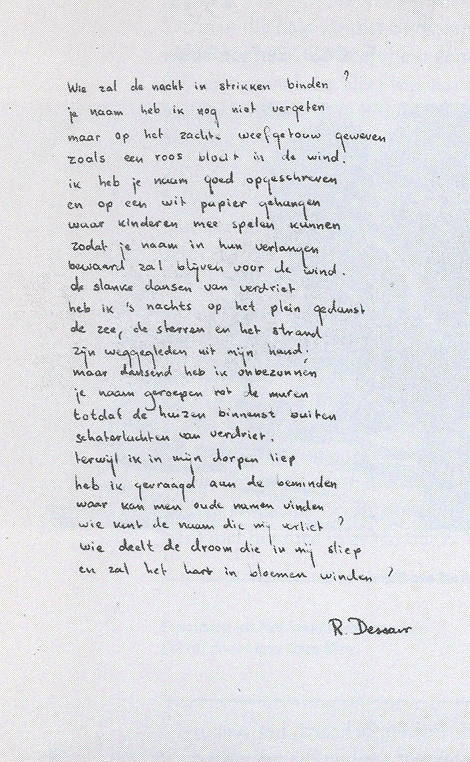 Wie zal de nacht in strikken binden ?
je naam heb ik nog niet vergeten
maar op het zachte weefgetouw geweven
zoals een roos bloeit in de wind.
ik heb je naam goed opgeschreven
en op een wit papier gehangen
waar kinderen mee spelen kunnen
zodat je naam in hun verlangen
bewaard zal blijven voor de wind.
de slanke dansen van verdriet
heb ik 's nachts op het plein gedanst
de zee, de sterren en het strand
zijn weggegleden uit mijn hand;
maar dansend heb ik onbezonnen
je naam geroepen tot de muren
totdat de huizen binnenst buiten
schaterlachten van verdriet.
terwijl ik in mijn dorpen liep
heb ik gevraagd aan de beminden
waar kan men oude namen vinden
wie kent de naam die mij verliet ?
wie deelt de droom die in mij sliep
en zal het hart in bloemen winden ?
R. Dessaur